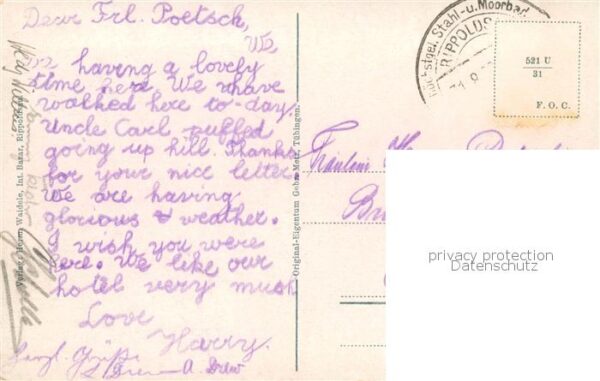 Dear Frl. Poetsch,
We
are having a lovely
time here. We have
walked here to-day.
Uncle Carl puffed
going up hill. Thanks
for your nice letter.
We are having
glorious & weather.
I wish you were
here. We like our
hotel very much
Love
Harry.
Herzl. Grüße
A. Drew
Höchstgel. Stahl- u. Moorbad
RIPPOLDS
521 U
31
F. O. C.
Fräulein
Verlag Horm. Waidele, Int. Bazar, Rippoldsau
Original-Eigentum Gebr. Metz, Tübingen.
privacy protection
Datenschutz